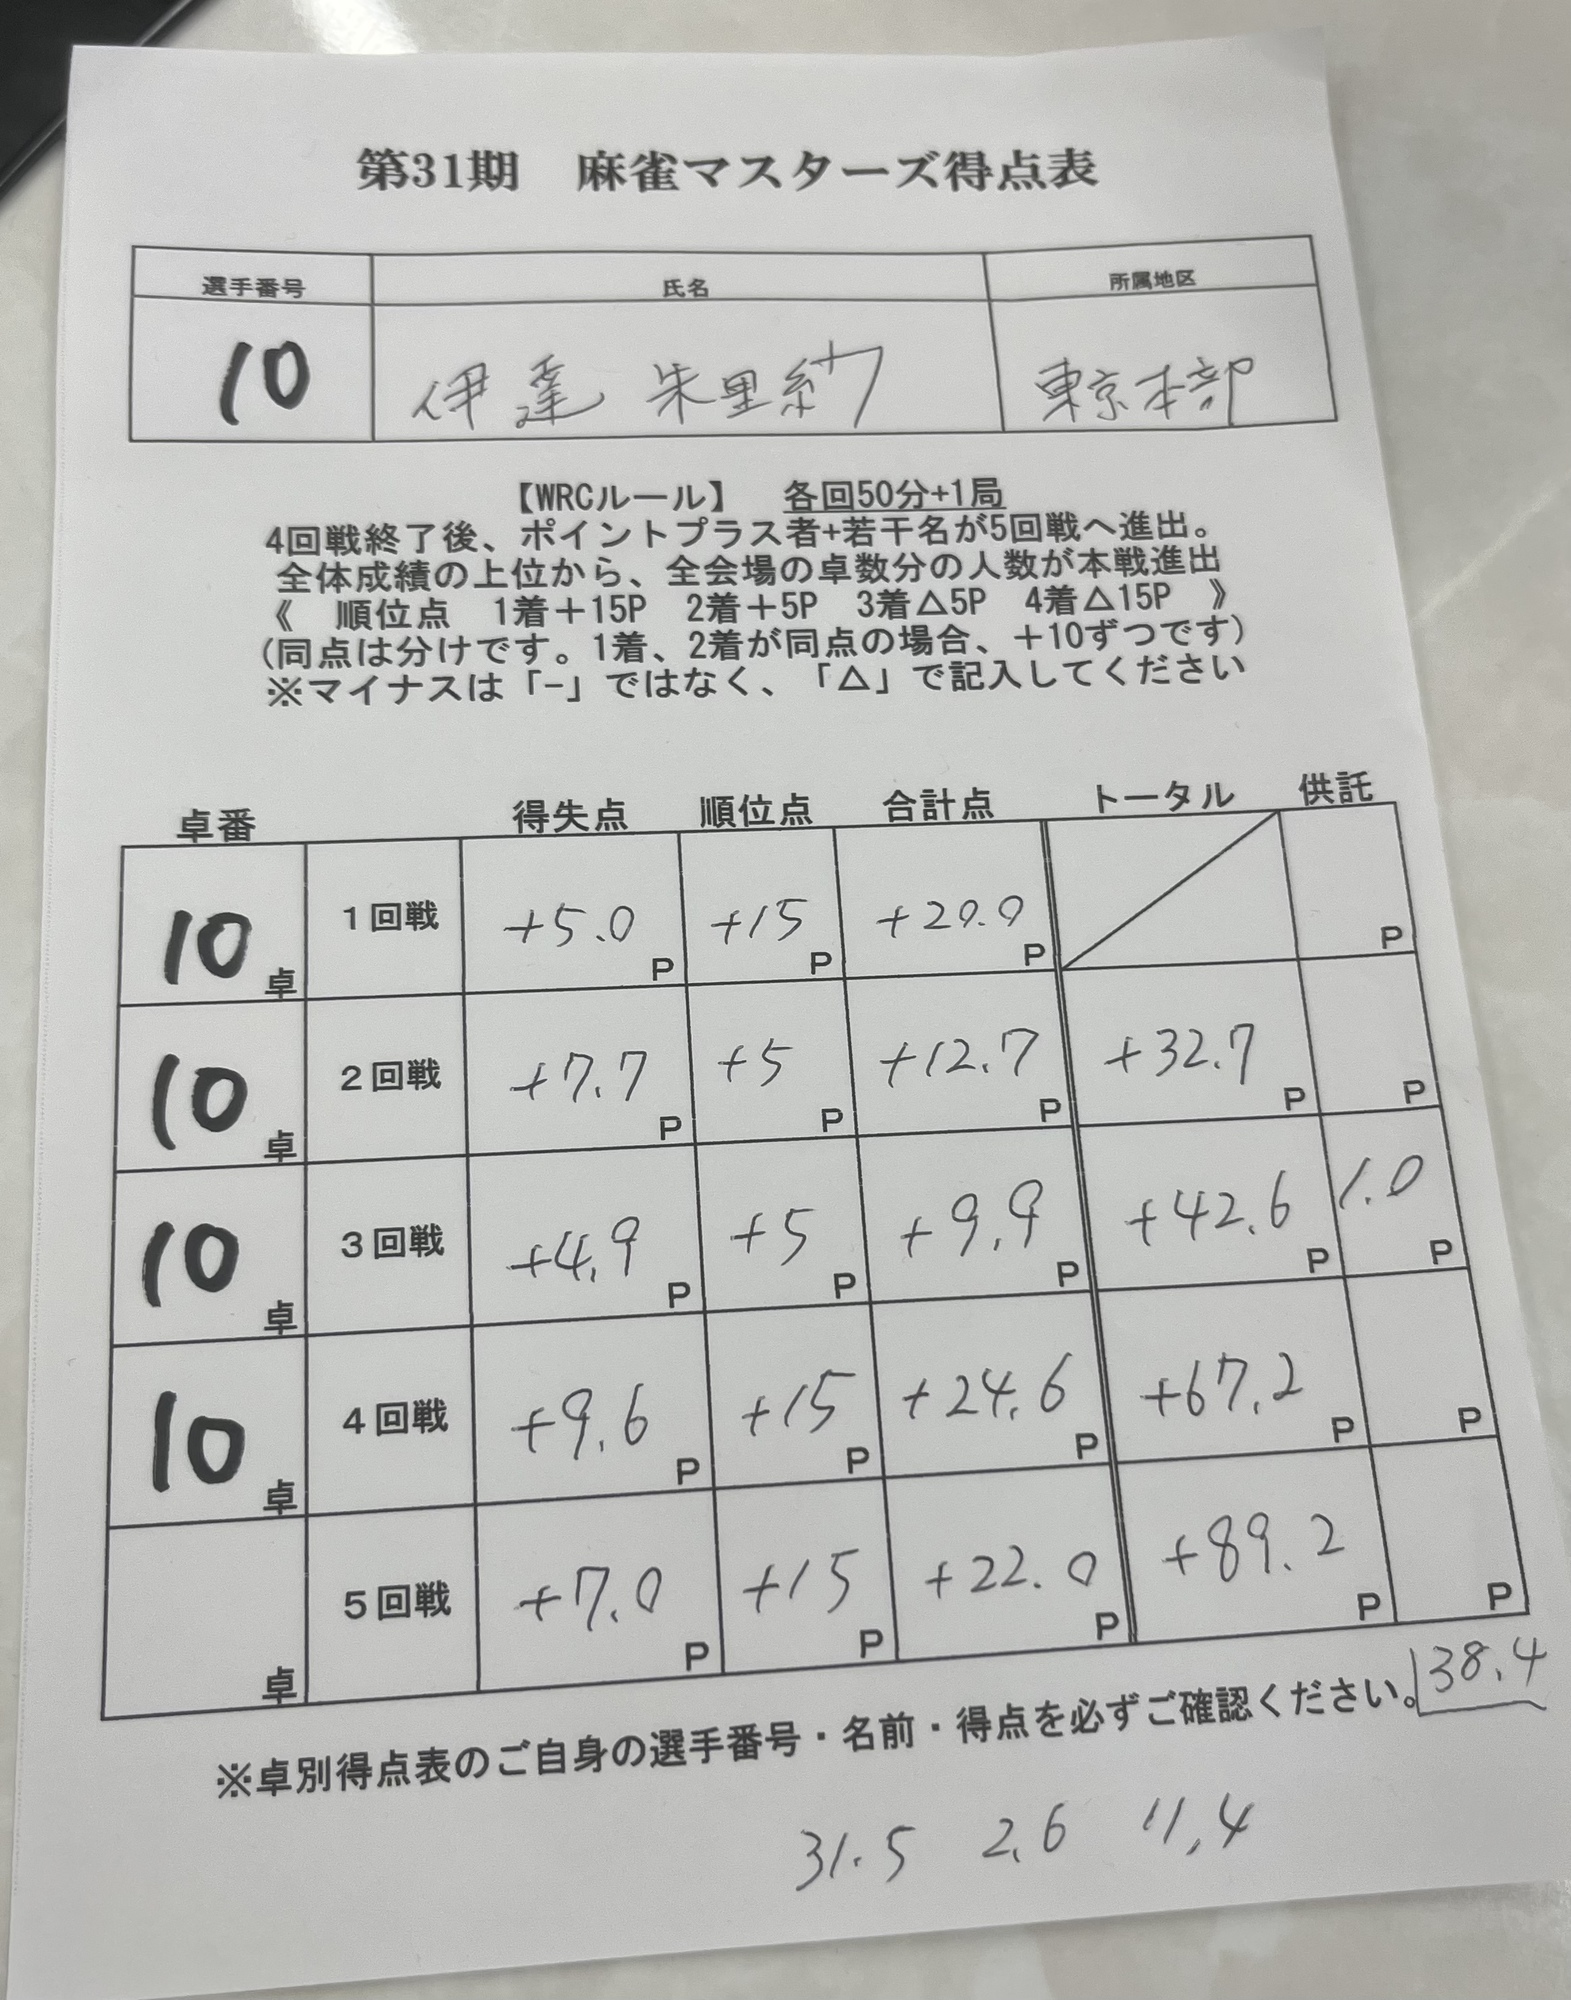 第31期　麻雀マスターズ得点表
選手番号 氏名 所属地区
10 伊達 朱里紗 東京本部
【WRCルール】　各回50分+1局
4回戦終了後、ポイントプラス者+若干名が5回戦へ進出。
全体成績の上位から、全会場の卓数分の人数が本戦進出
《　順位点　1着＋15P　2着＋5P　3着△5P　4着△15P　》
(同点は分けです。1着、2着が同点の場合、＋10ずつです)
※マイナスは「-」ではなく、「△」で記入してください
卓番 得失点 順位点 合計点 トータル 供託
10卓 1回戦 +5.0P +15P +20.0P P
10卓 2回戦 +7.7P +5P +12.7P +32.7P P
10卓 3回戦 +4.9P +5P +9.9P +42.6P 1.0P
10卓 4回戦 +9.6P +15P +24.6P +67.2P P
卓 5回戦 +7.0P +15P +22.0P +89.2P P
※卓別得点表のご自身の選手番号・名前・得点を必ずご確認ください。 38.4
31.5 2.6 11.4